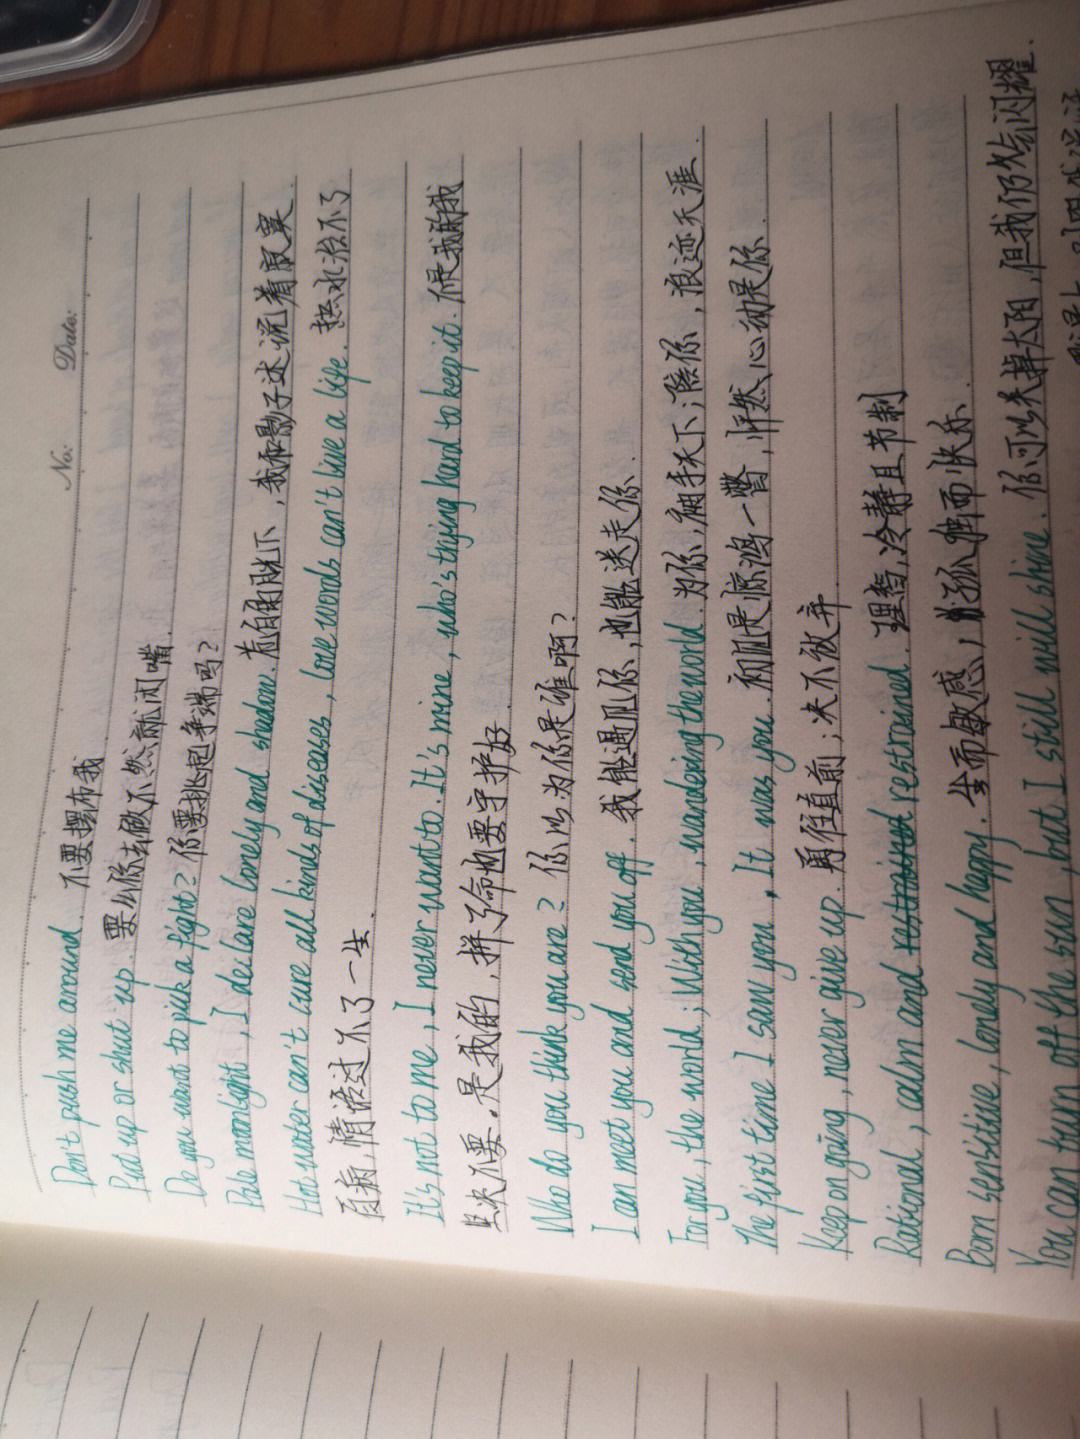 No: Date:
Don't push me around. 不要摆布我
Put up or shut up. 要么你去做不然就闭嘴.
Do you want to pick a fight? 你要挑起争端吗?
Pale moonlight, I declare lonely and shadow. 苍白月光下, 我和影子述说着寂寞.
Hot water can't cure all kinds of diseases, love words can't live a life. 热水治不了
百病, 情话过不了一生.
It's not to me, I never want to. It's mine, who's trying hard to keep it. 不是我的我
坚决不要. 是我的, 拼了命也要守护好.
Who do you think you are? 你以为你是谁啊?
I can meet you and send you off. 我能遇见你, 也能送走你.
For you, the world; With you, wandering the world. 为你, 翻手天下; 陪你, 浪迹天涯.
The first time I saw you, It was you. 初见是惊鸿一瞥, 怦然心动是你.
Keep on going, never give up. 勇往直前; 决不放弃
Rational, calm and restrained. 理智, 冷静且节制
Born sensitive, lonely and happy. 生而敏感, 孤独而快乐.
You can turn off the sun, but I still will shine. 你可以关掉太阳, 但我仍然闪耀.